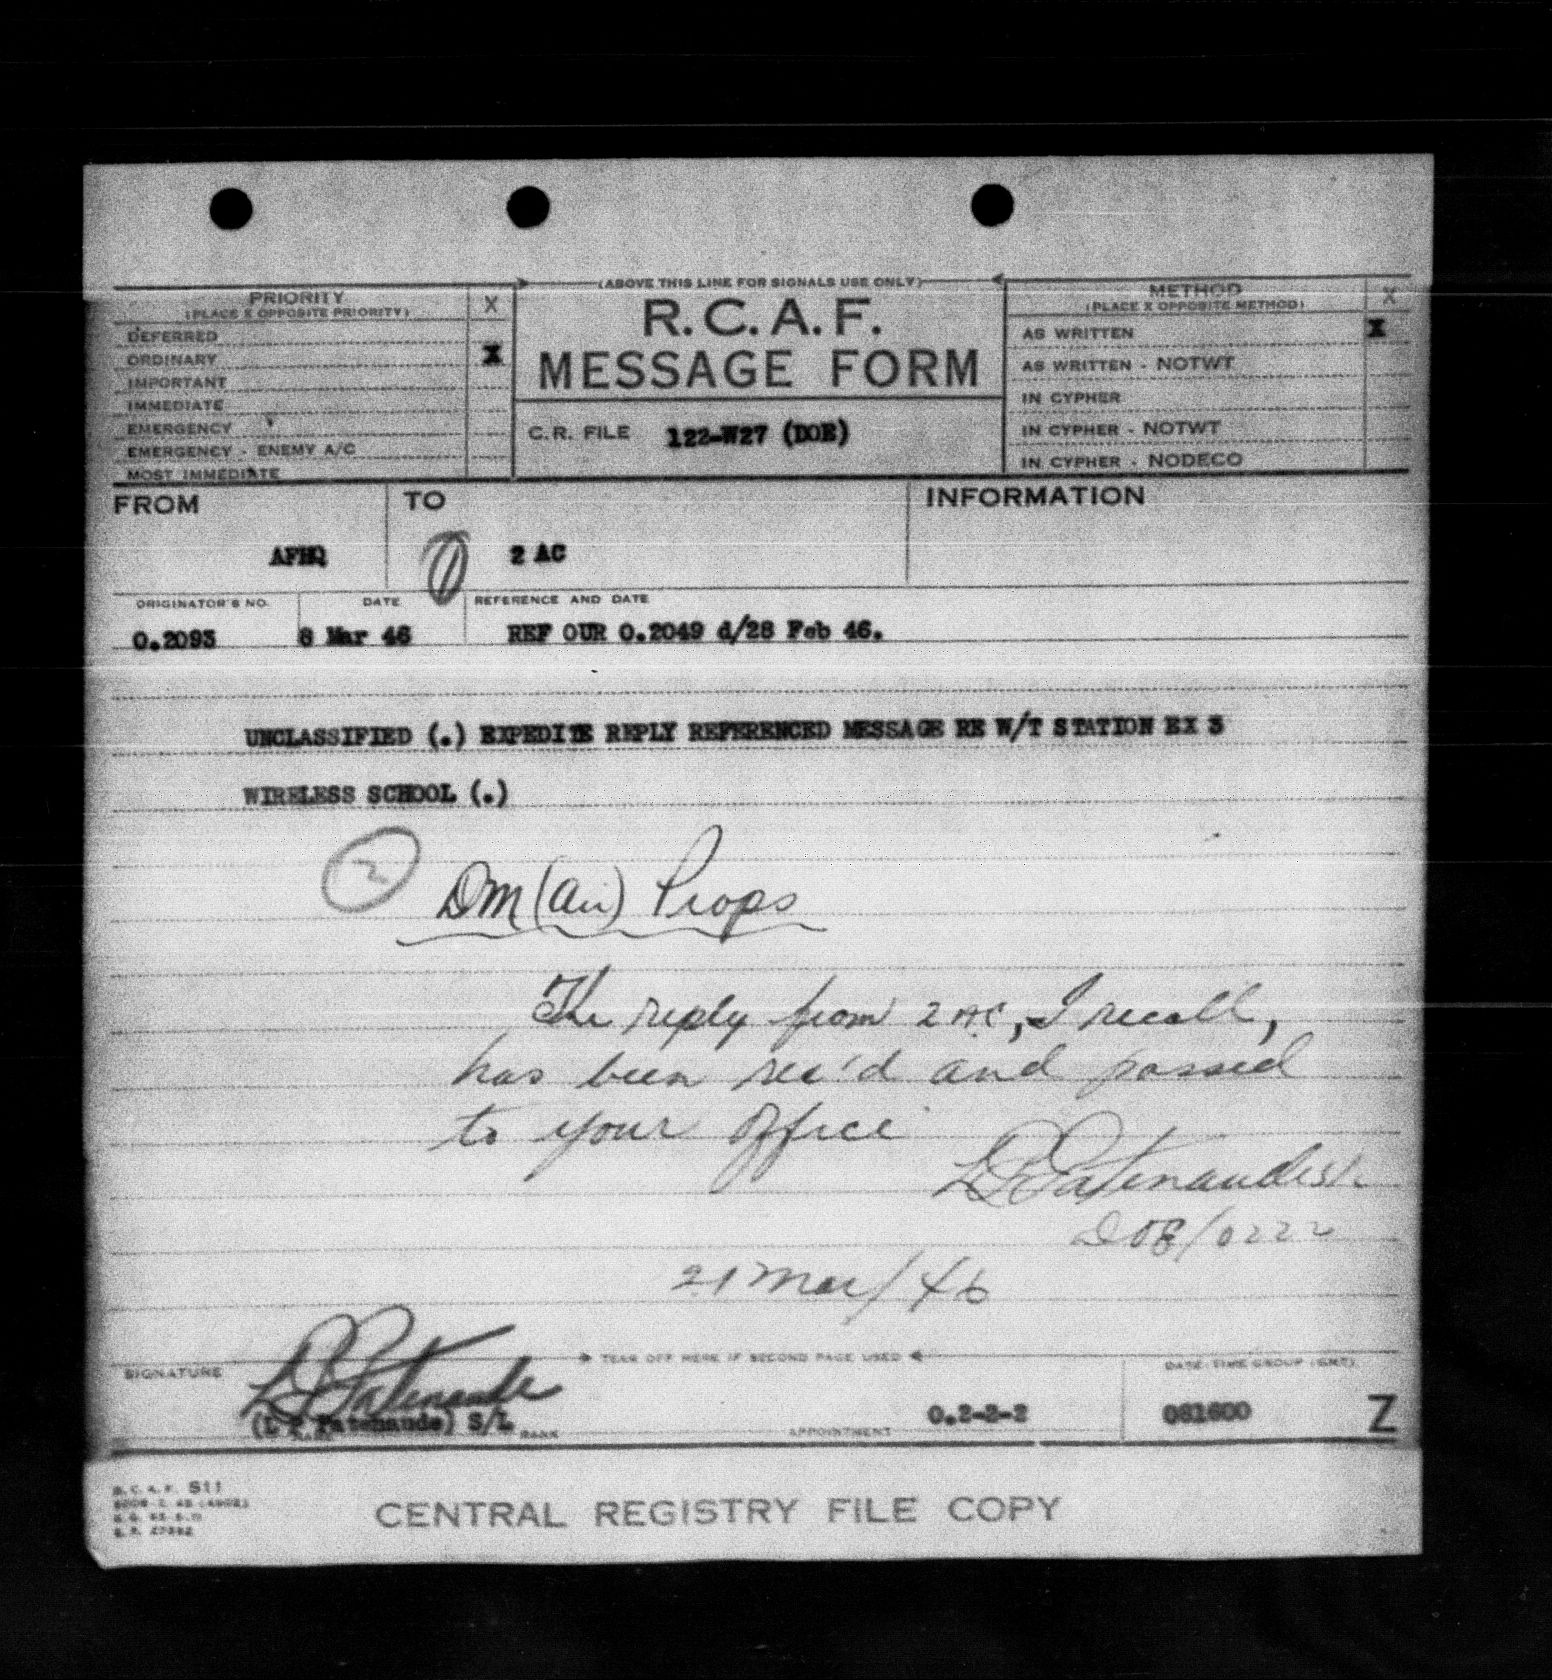 (ABOVE THIS LINE FOR SIGNALS USE ONLY)
PRIORITY X
(PLACE X OPPOSITE PRIORITY)
DEFERRED
ORDINARY X
IMPORTANT
IMMEDIATE
EMERGENCY
EMERGENCY - ENEMY A/C
MOST IMMEDIATE
R.C.A.F.
MESSAGE FORM
C.R. FILE 122-W27 (DOE)
METHOD X
(PLACE X OPPOSITE METHOD)
AS WRITTEN X
AS WRITTEN - NOTWT
IN CYPHER
IN CYPHER - NOTWT
IN CYPHER - NODECO
FROM TO INFORMATION
AFHQ 1 2 AC
ORIGINATOR'S NO. DATE REFERENCE AND DATE
O.2093 8 Mar 46 REF OUR O.2049 d/28 Feb 46.
UNCLASSIFIED (.) EXPEDITE REPLY REFERENCED MESSAGE RE W/T STATION EX 3
WIRELESS SCHOOL (.)
2 DM (Air) Props
The reply from 2 AC, I recall,
has been rec'd and passed
to your office
L P Patenaude S/L
DOE/0222
21 Mar/46
TEAR OFF HERE IF SECOND PAGE USED
SIGNATURE L P Patenaude DATE-TIME GROUP (GMT)
(L P Patenaude) S/L RANK APPOINTMENT O.2-2-2 081600 Z
R.C.A.F. S11
CENTRAL REGISTRY FILE COPY